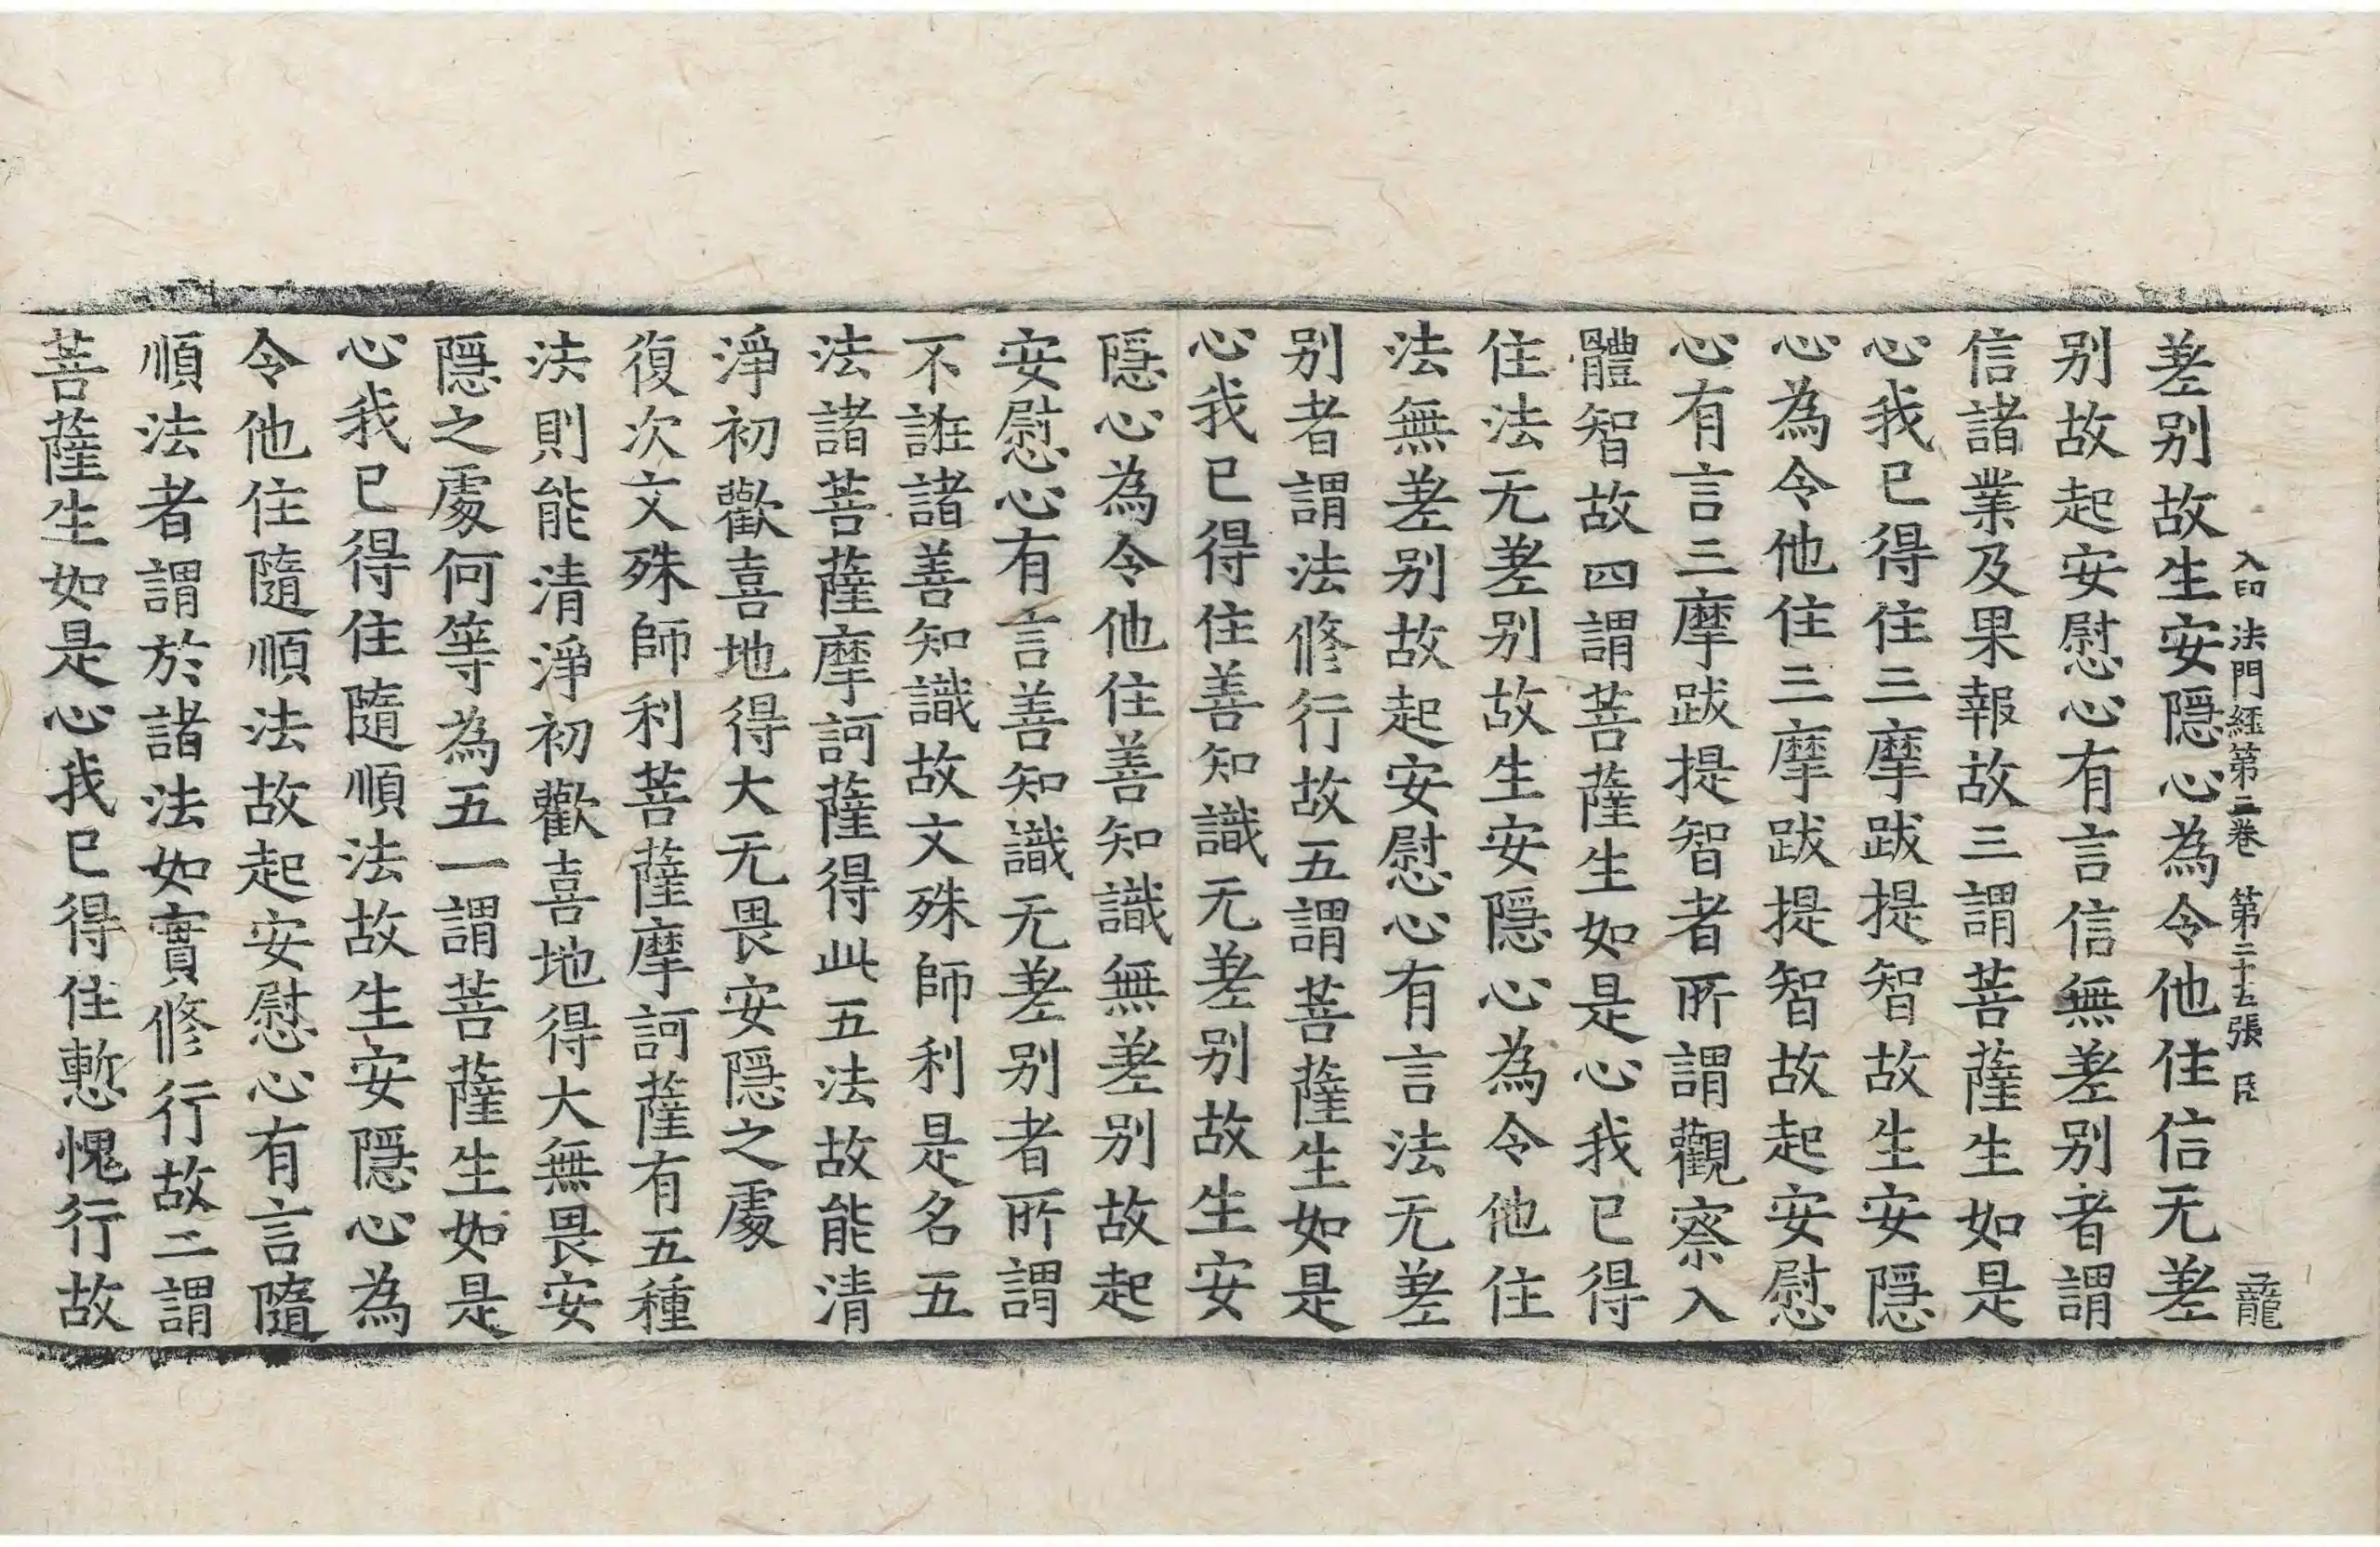 入印法門經第二卷 第二十五張 臣 龍
差别故生安隱心為令他住信无差
别故起安慰心有言信無差别者謂
信諸業及果報故三謂菩薩生如是
心我已得住三摩跋提智故生安隱
心為令他住三摩跋提智故起安慰
心有言三摩跋提智者所謂觀察入
體智故四謂菩薩生如是心我已得
住法无差别故生安隱心為令他住
法無差别故起安慰心有言法无差
别者謂法修行故五謂菩薩生如是
心我已得住善知識无差别故生安
隱心為令他住善知識無差别故起
安慰心有言善知識无差别者所謂
不誑諸善知識故文殊師利是名五
法諸菩薩摩訶薩得此五法故能清
淨初歡喜地得大无畏安隱之處
復次文殊師利菩薩摩訶薩有五種
法則能清淨初歡喜地得大無畏安
隱之處何等為五一謂菩薩生如是
心我已得住隨順法故生安隱心為
令他住隨順法故起安慰心有言隨
順法者謂於諸法如實修行故二謂
菩薩生如是心我已得住慙愧行故